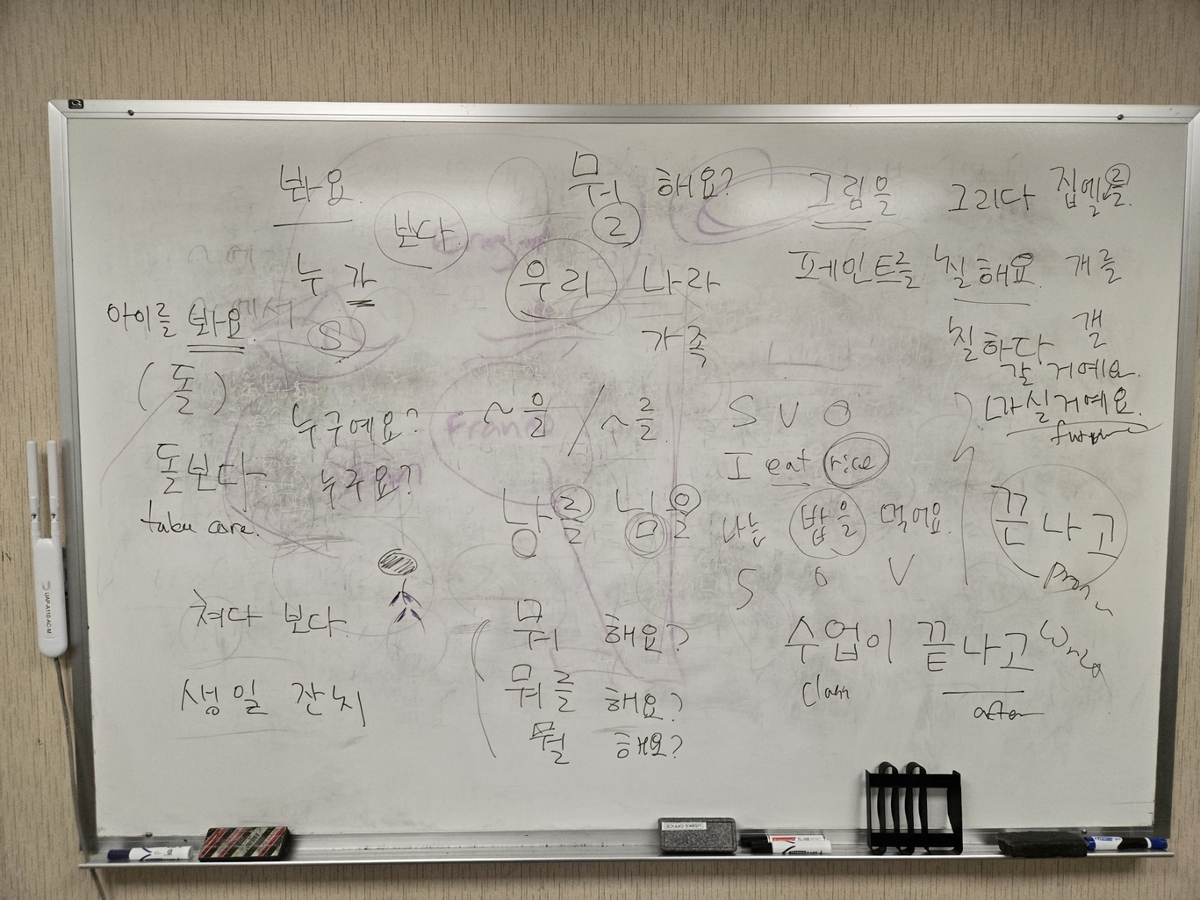 봐요.
보다.
누가
S
아이를 봐요.
(돌)
누구예요?
누구요?
돌보다
take care.
쳐다 보다.
생일 잔치
뭐 해요?
ㄹ
우리 나라
가족
~을 / ~를
낭를 님을
뭐 해요?
뭐를 해요?
뭘 해요?
그림을 그리다
페인트를 칠해요.
칠하다
집엘
개를
걜
갈 거예요.
가실거예요.
future
S V O
I eat rice
나는 밥을 먹어요.
S O V
끝나고
수업이 끝나고
Class after